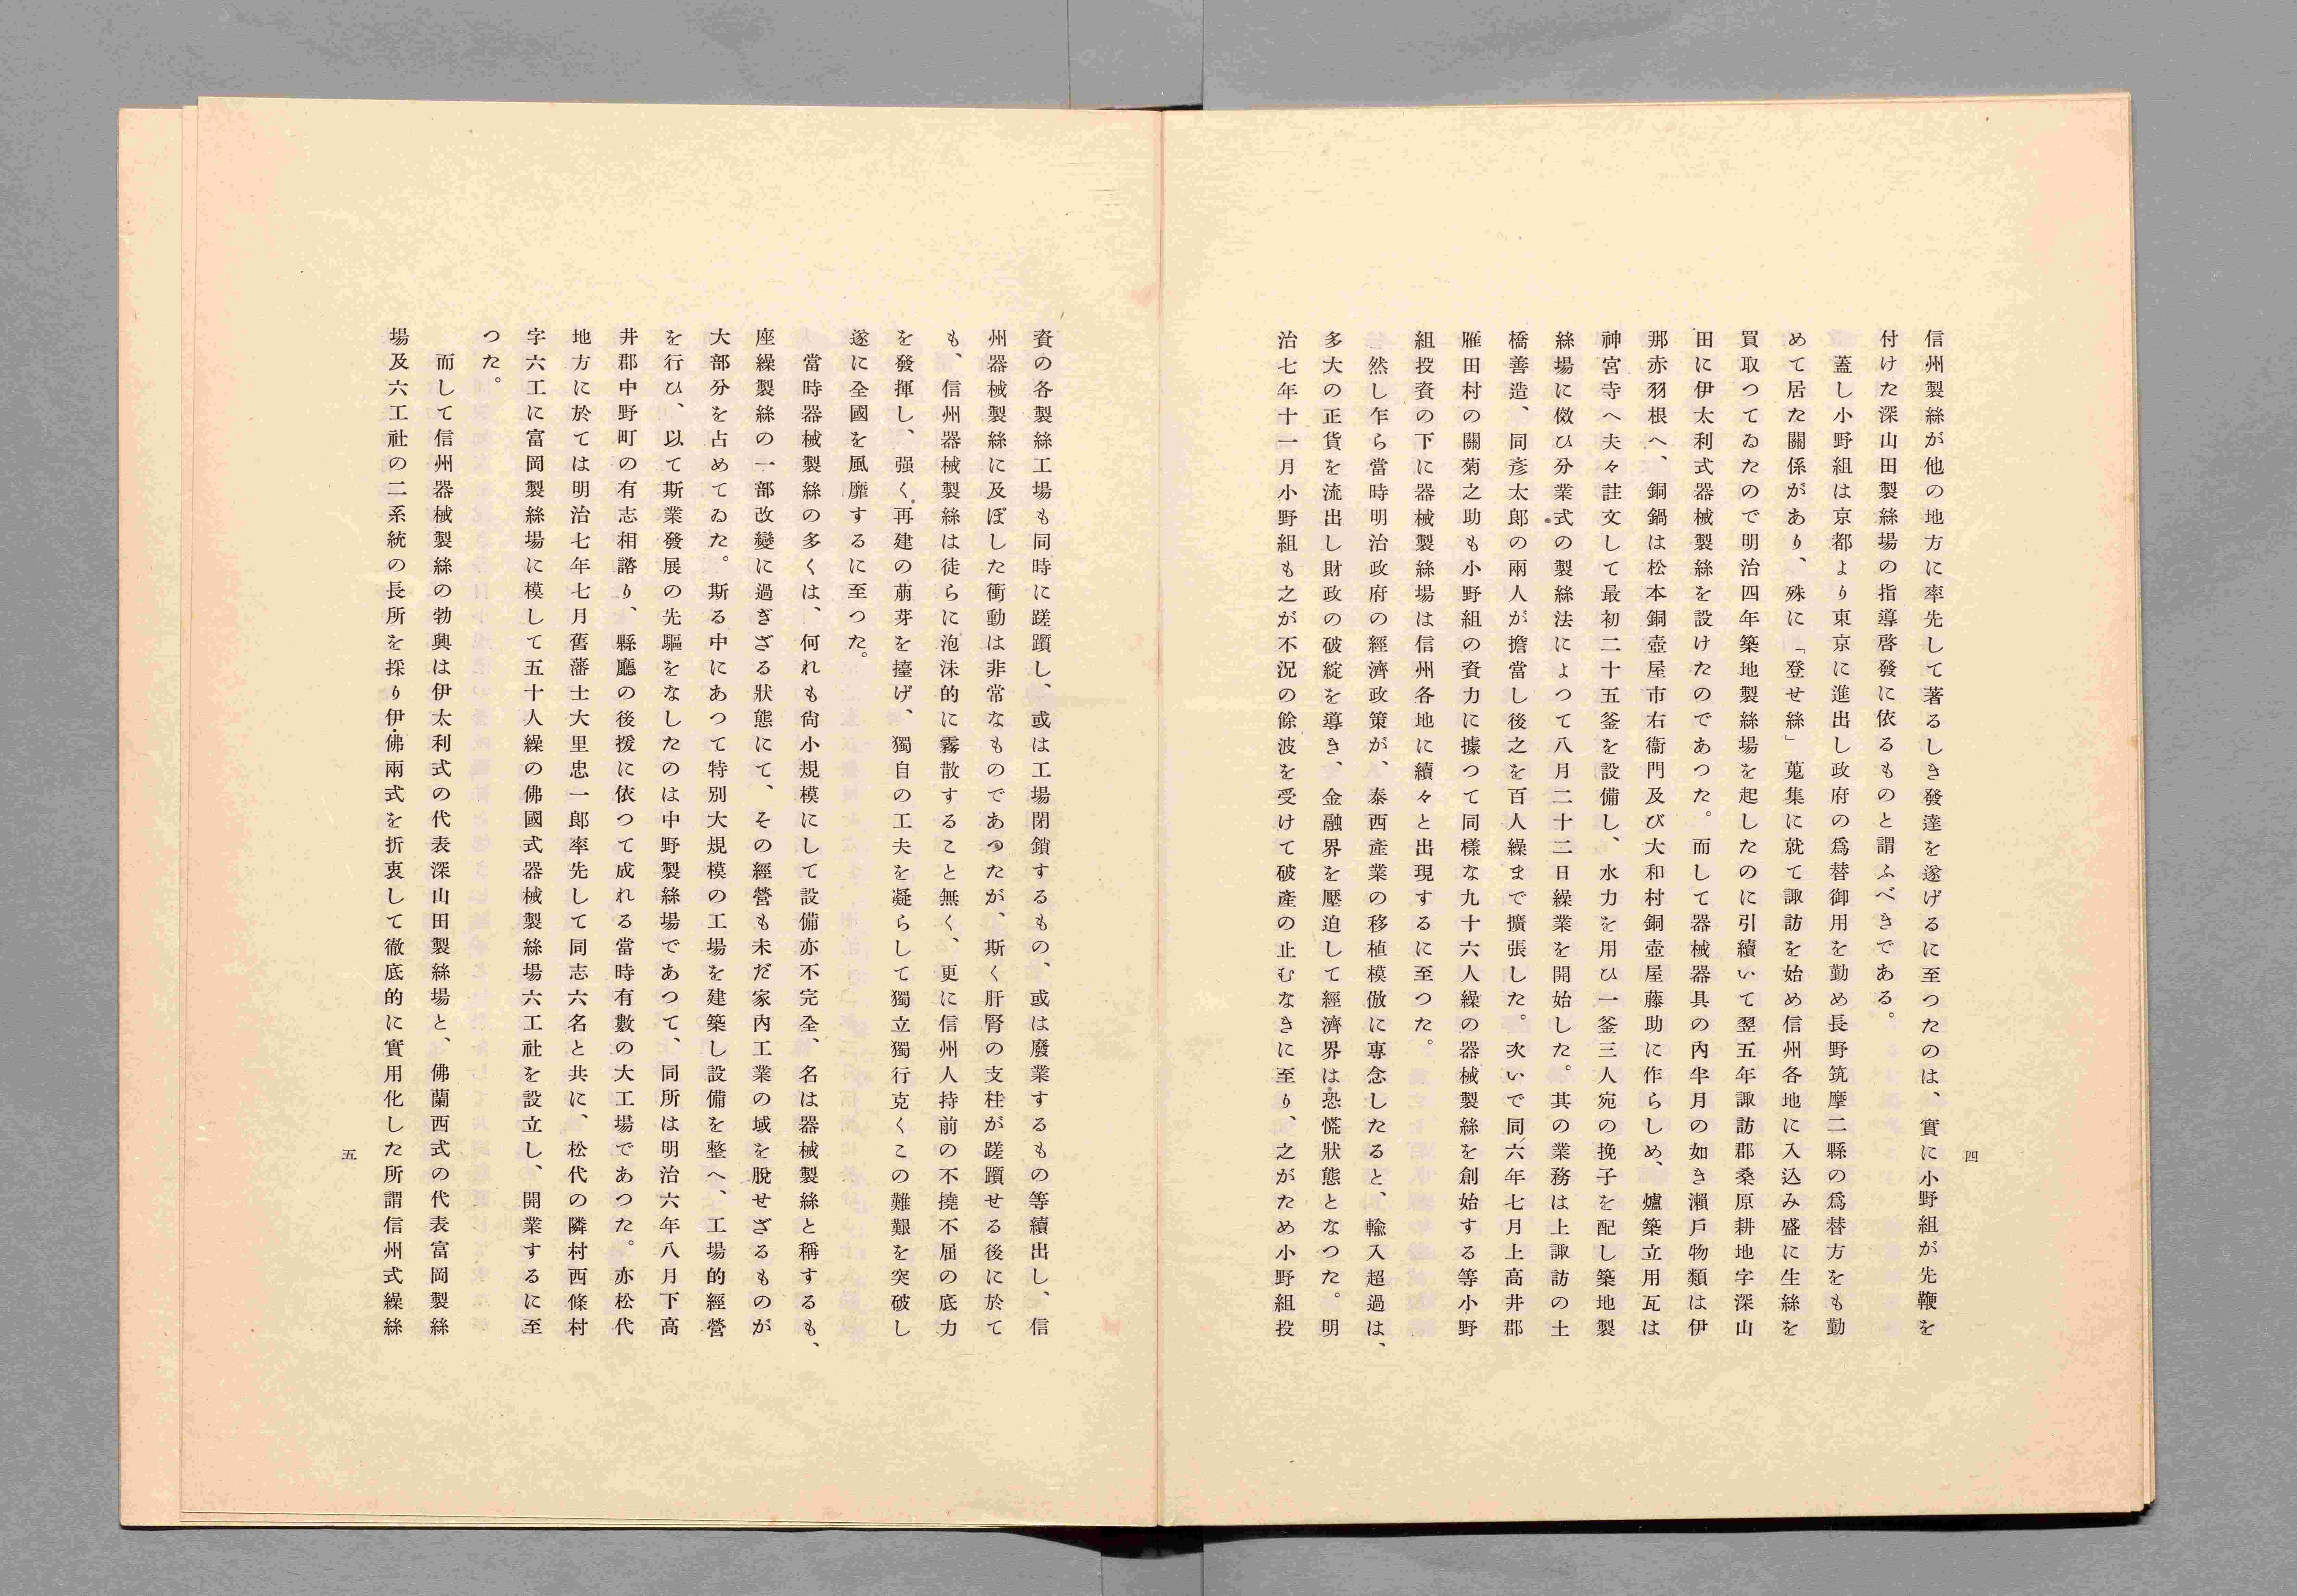 信州製絲が他の地方に率先して著るしき發達を遂げるに至つたのは、實に小野組が先鞭を
付けた深山田製絲場の指導啓發に依るものと謂ふべきである。
蓋し小野組は京都より東京に進出し政府の爲替御用を勤め長野筑摩二縣の爲替方をも勤
めて居た關係があり、殊に「登せ絲」蒐集に就て諏訪を始め信州各地に入込み盛に生絲を
買取つてゐたので明治四年築地製絲場を起したのに引續いて翌五年諏訪郡桑原耕地字深山
田に伊太利式器械製絲を設けたのであつた。而して器械器具の內半月の如き瀨戶物類は伊
那赤羽根へ、銅鍋は松本銅壺屋市右衞門及び大和村銅壺屋藤助に作らしめ、爐築立用瓦は
神宮寺へ夫々註文して最初二十五釜を設備し、水力を用ひ一釜三人宛の挽子を配し築地製
絲場に傚ひ分業式の製絲法によつて八月二十二日繰業を開始した。其の業務は上諏訪の土
橋善造、同彥太郞の兩人が擔當し後之を百人繰まで擴張した。次いで同六年七月上高井郡
雁田村の關菊之助も小野組の資力に據つて同樣な九十六人繰の器械製絲を創始する等小野
組投資の下に器械製絲場は信州各地に續々と出現するに至つた。
然し乍ら當時明治政府の經濟政策が、泰西產業の移植模倣に專念したると、輸入超過は、
多大の正貨を流出し財政の破綻を導き、金融界を壓迫して經濟界は恐慌狀態となつた。明
治七年十一月小野組も之が不況の餘波を受けて破產の止むなきに至り、之がため小野組投
四
資の各製絲工場も同時に蹉躓し、或は工場閉鎖するもの、或は廢業するもの等續出し、信
州器械製絲に及ぼした衝動は非常なものであつたが、斯く肝腎の支柱が蹉躓せる後に於て
も、信州器械製絲は徒らに泡沫的に霧散すること無く、更に信州人持前の不撓不屈の底力
を發揮し、强く再建の萠芽を擡げ、獨自の工夫を凝らして獨立獨行克くこの難艱を突破し
遂に全國を風靡するに至つた。
當時器械製絲の多くは、何れも尙小規模にして設備亦不完全、名は器械製絲と稱するも、
座繰製絲の一部改變に過ぎざる狀態にて、その經營も未だ家內工業の域を脫せざるものが
大部分を占めてゐた。斯る中にあつて特別大規模の工場を建築し設備を整へ、工場的經營
を行ひ、以て斯業發展の先驅をなしたのは中野製絲場であつて、同所は明治六年八月下高
井郡中野町の有志相諮り、縣廳の後援に依つて成れる當時有數の大工場であつた。亦松代
地方に於ては明治七年七月舊藩士大里忠一郞率先して同志六名と共に、松代の隣村西條村
字六工に富岡製絲場に模して五十人繰の佛國式器械製絲場六工社を設立し、開業するに至
つた。
而して信州器械製絲の勃興は伊太利式の代表深山田製絲場と、佛蘭西式の代表富岡製絲
場及六工社の二系統の長所を採り伊佛兩式を折衷して徹底的に實用化した所謂信州式繰絲
五